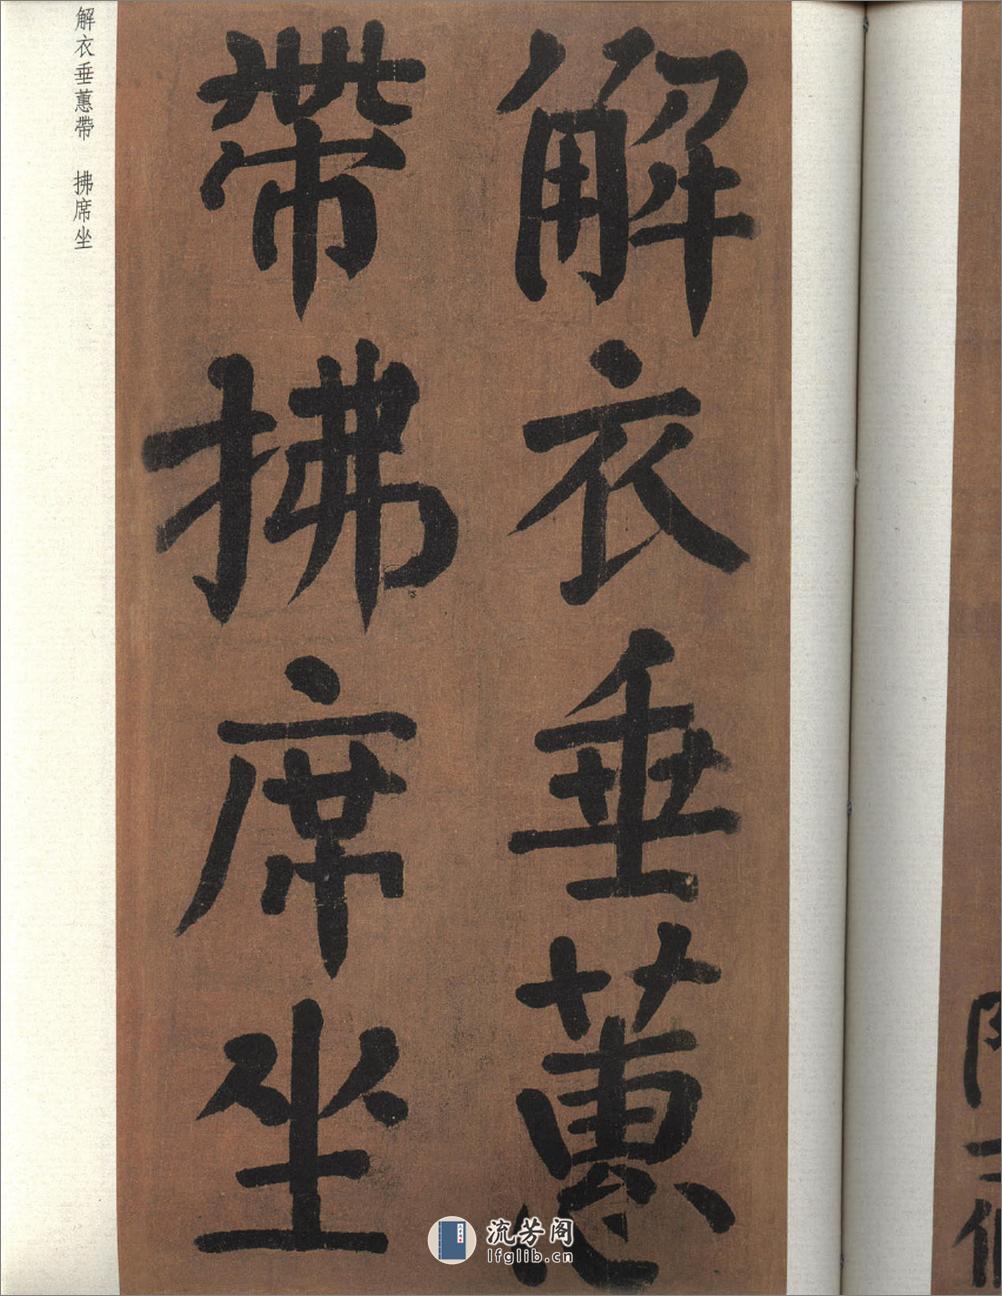 解衣垂蕙
帶拂席坐
解衣垂蕙帶　拂席坐
流芳阁
lfglib.cn